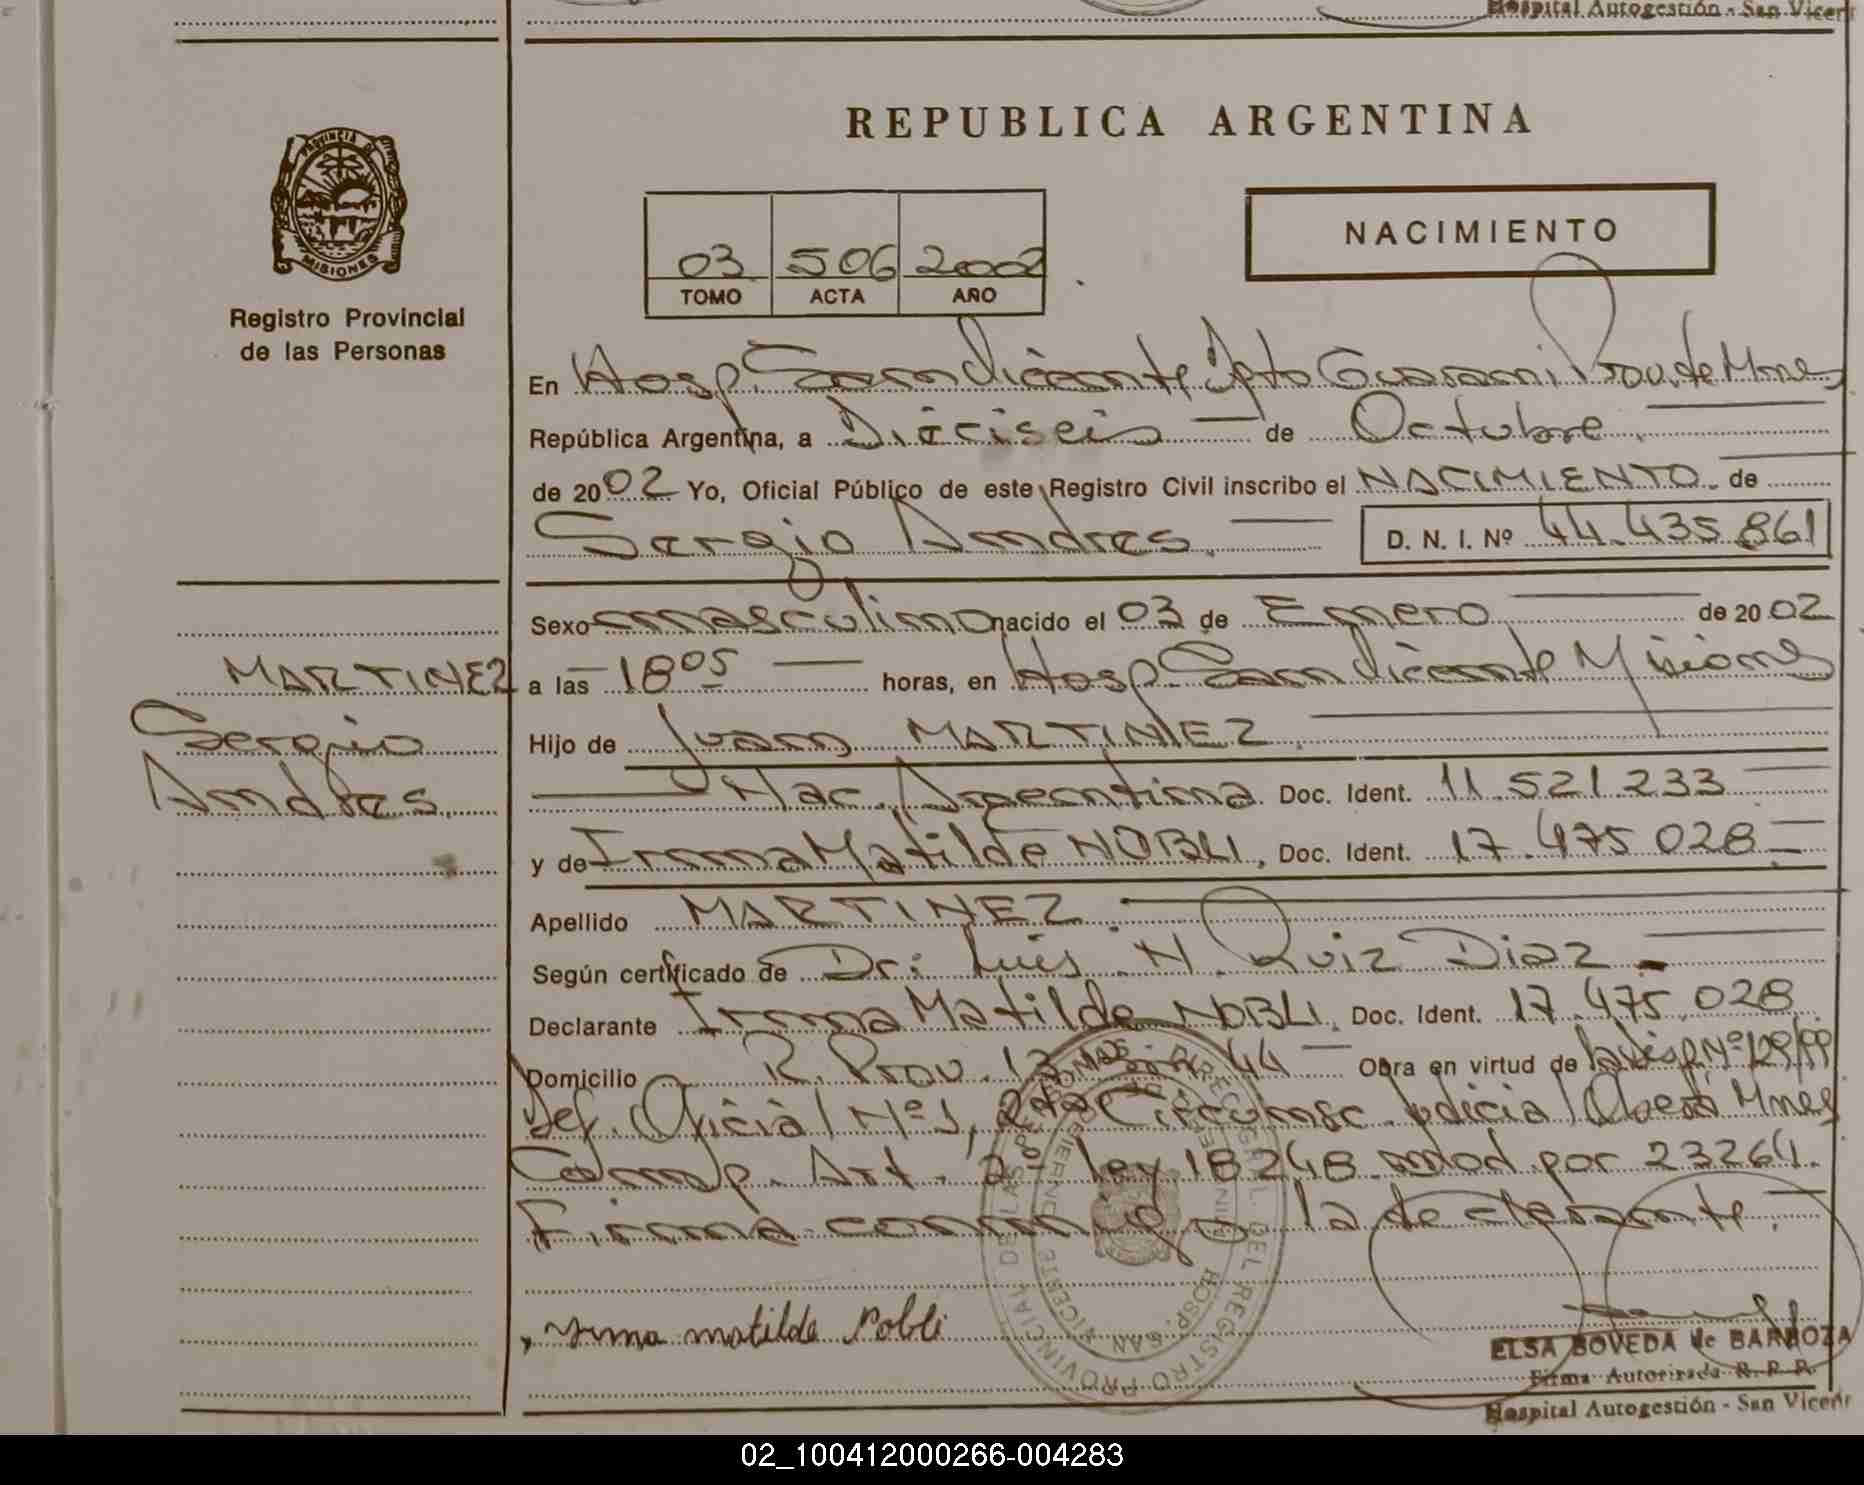 Hospital Autogestión - San Vicen
PROVINCIA DE
MISIONES
Registro Provincial
de las Personas
REPUBLICA ARGENTINA
03 506 2002
TOMO ACTA AÑO
NACIMIENTO
En Hosp. San Vicente Dpto Guarani Prov. de Mnes
República Argentina, a Dieciseis de Octubre
de 2002 Yo, Oficial Público de este Registro Civil inscribo el NACIMIENTO de
Sergio Andres. D. N. I. Nº 44.435.861
Sexo masculino nacido el 03 de Enero de 2002
MARTINEZ
Sergio
Andres.
a las 18 05 horas, en Hosp. San Vicente Misiones
Hijo de Juan MARTINEZ.
Nac. Argentina. Doc. Ident. 11.521.233
y de Irma Matilde NOBLI, Doc. Ident. 17.475.028
Apellido MARTINEZ.
Según certificado de Dr: Luis N. Ruiz Diaz
Declarante Irma Matilde NOBLI. Doc. Ident. 17.475.028
Domicilio R. Prov. 13 44 Obra en virtud de la Disp. Nº 129/99
Def. Oficial Nº 1, 2da Circunsc. Judicial Oberá Mnes
Comp. Art. 2º ley 18248 mod. por 23264.
Firma conmigo la declarante.
Irma matilde Nobli
REGISTRO PROVINCIAL DE LAS PERSONAS
HOSP. SAN VICENTE
ELSA BOVEDA de BARBOZA
Firma Autorizada R. P. P.
Hospital Autogestión - San Vicent
02_100412000266-004283